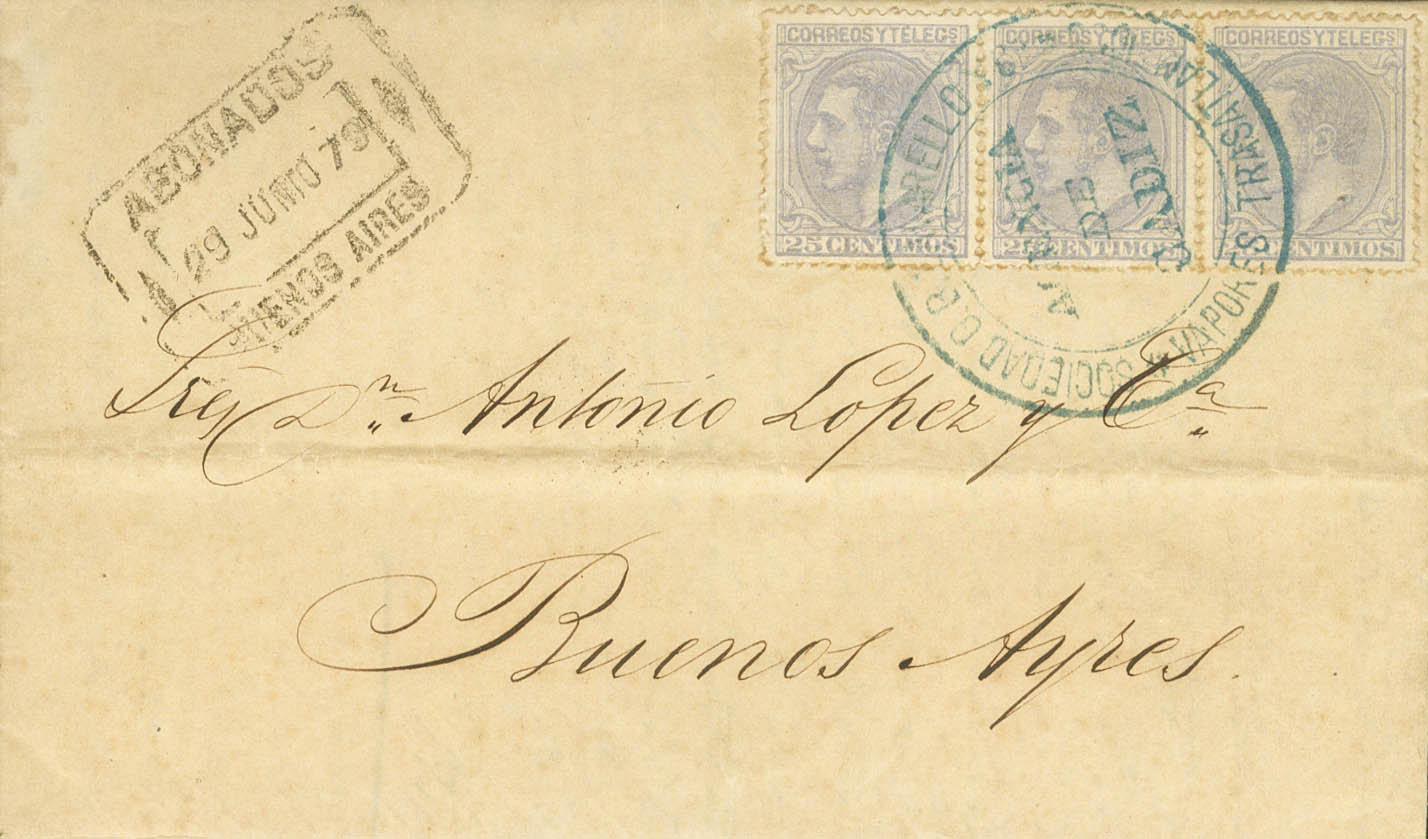 ABONADOS
29 JUNIO 79
BUENOS AIRES
CORREOS Y TELEGS
25 CENTIMOS
CORREOS Y TELEGS
25 CENTIMOS
CORREOS Y TELEGS
CENTIMOS
SOCIEDAD VAPORES TRASATLAN
AGENCIA
DE
CADIZ
Sres Dn Antonio Lopez y Ca
Buenos Ayres.